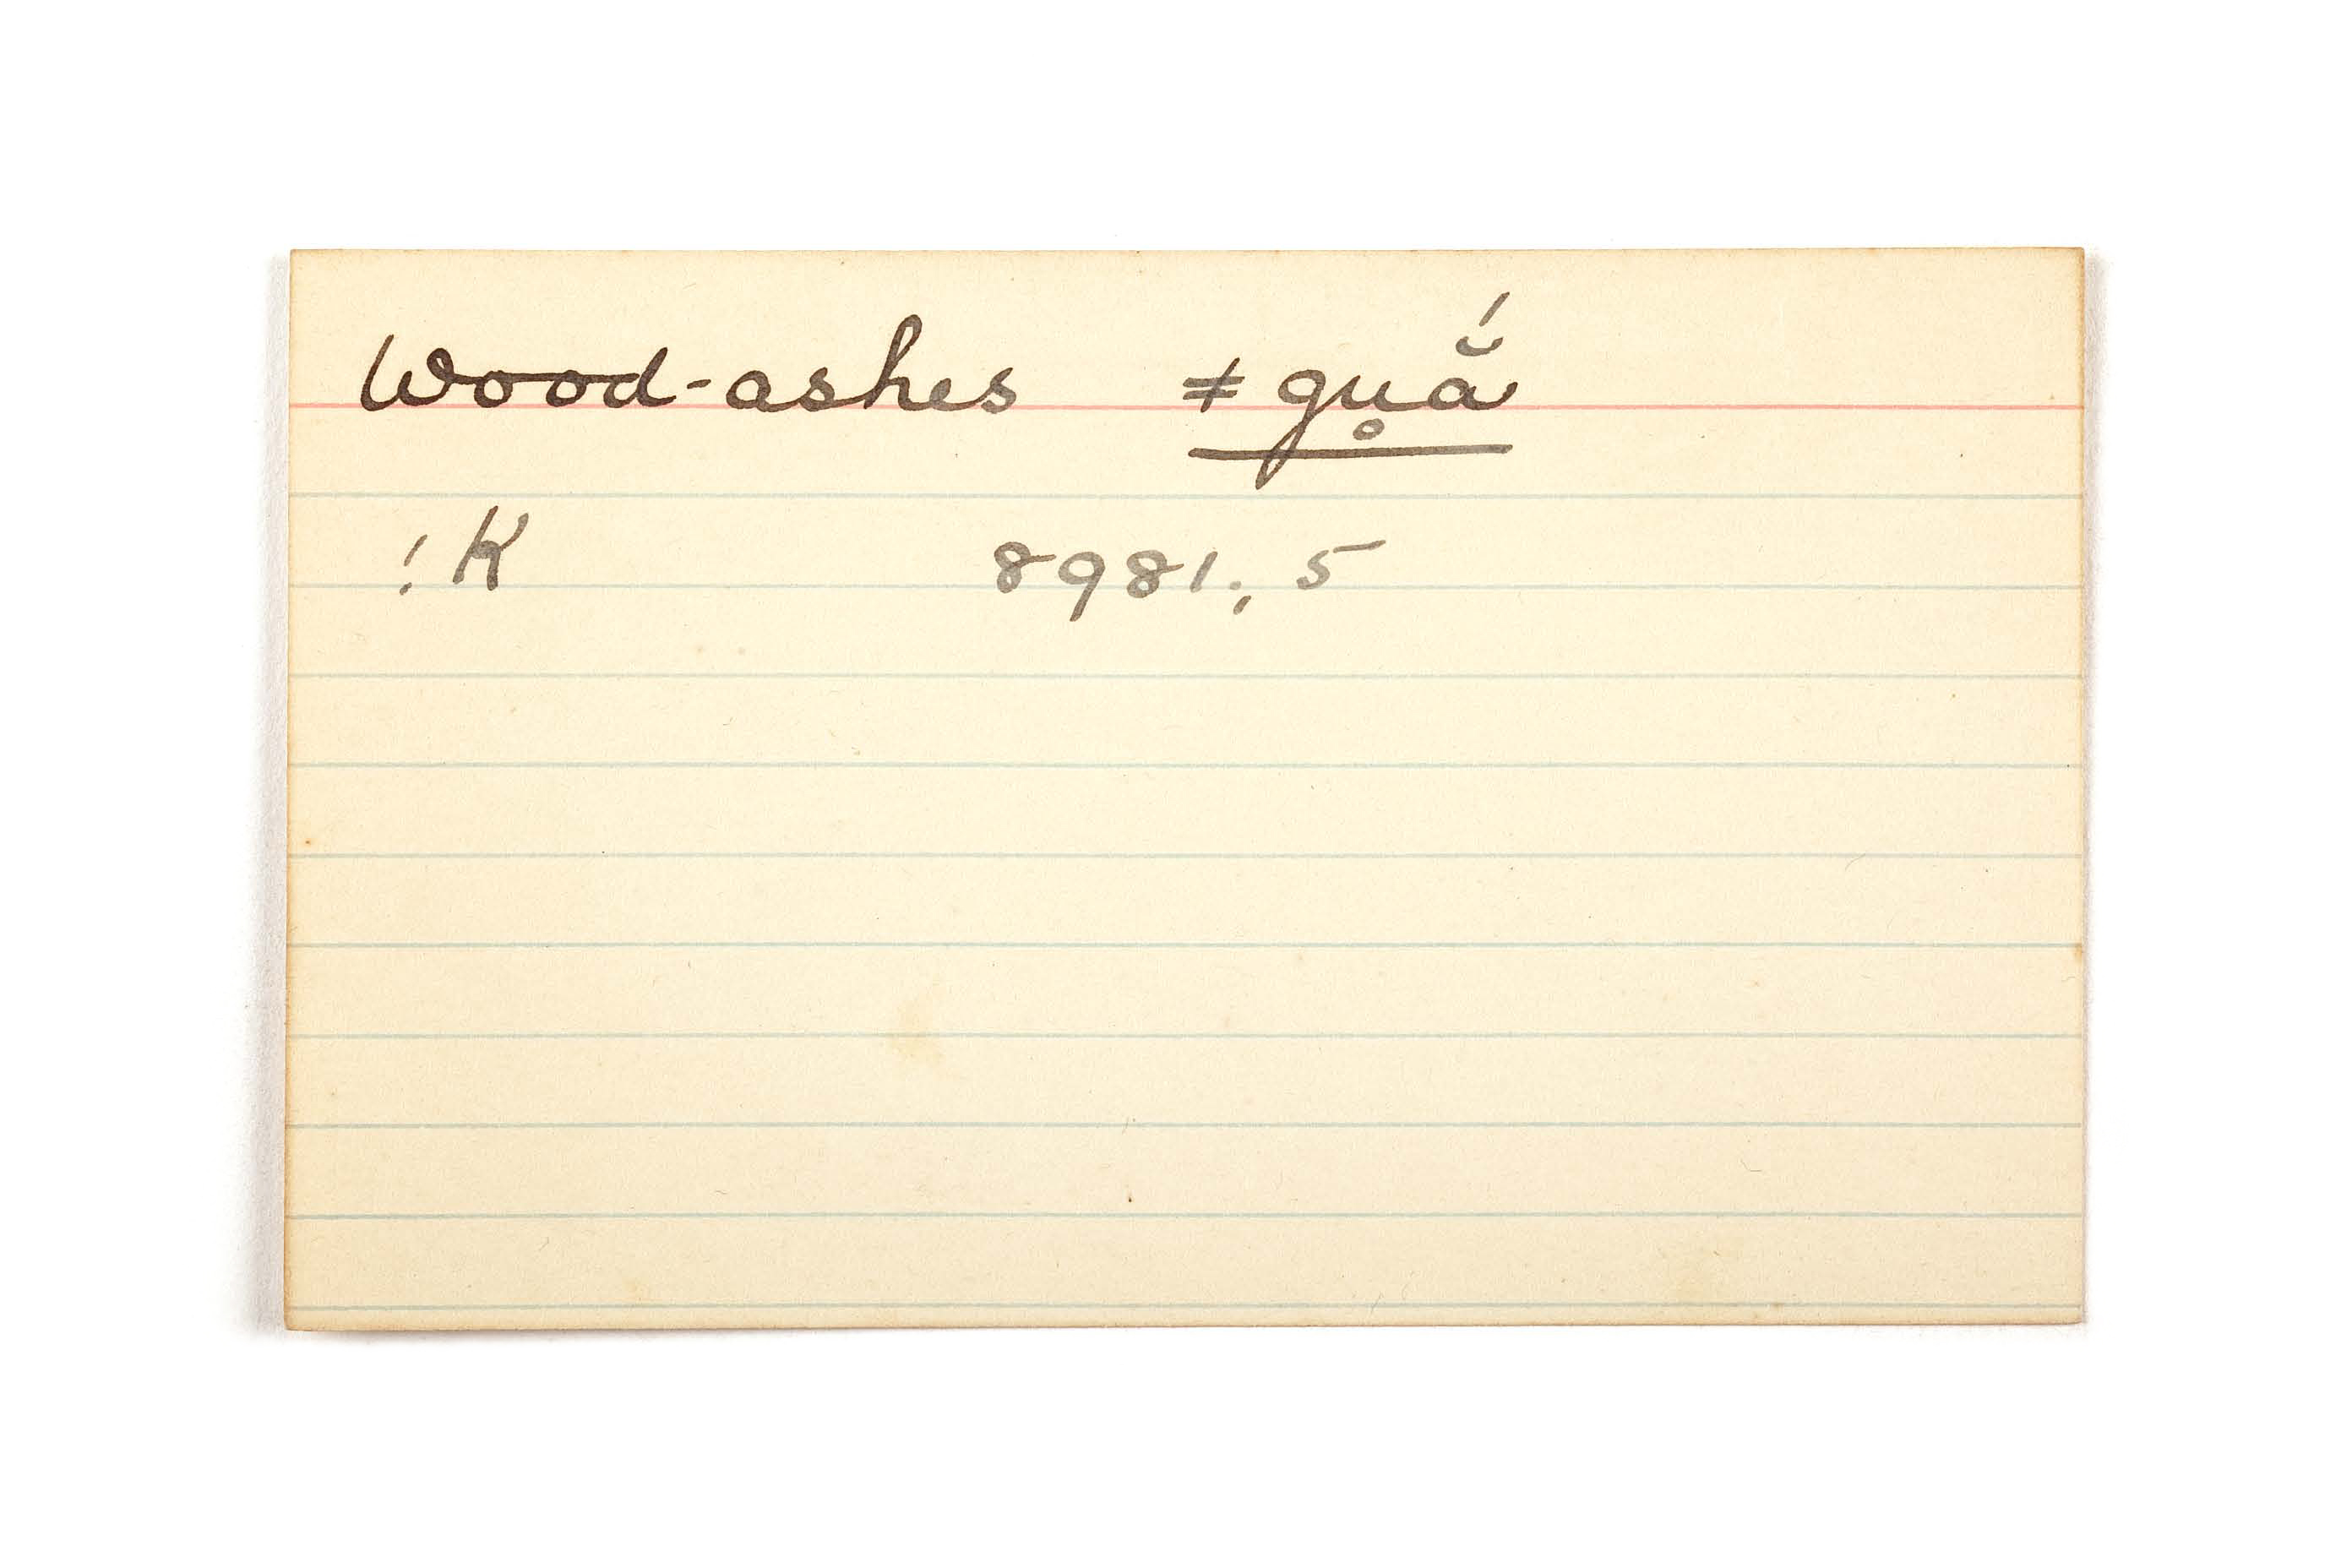 Wood-ashes ≠ gu̥ắ
!K 8981.; 5